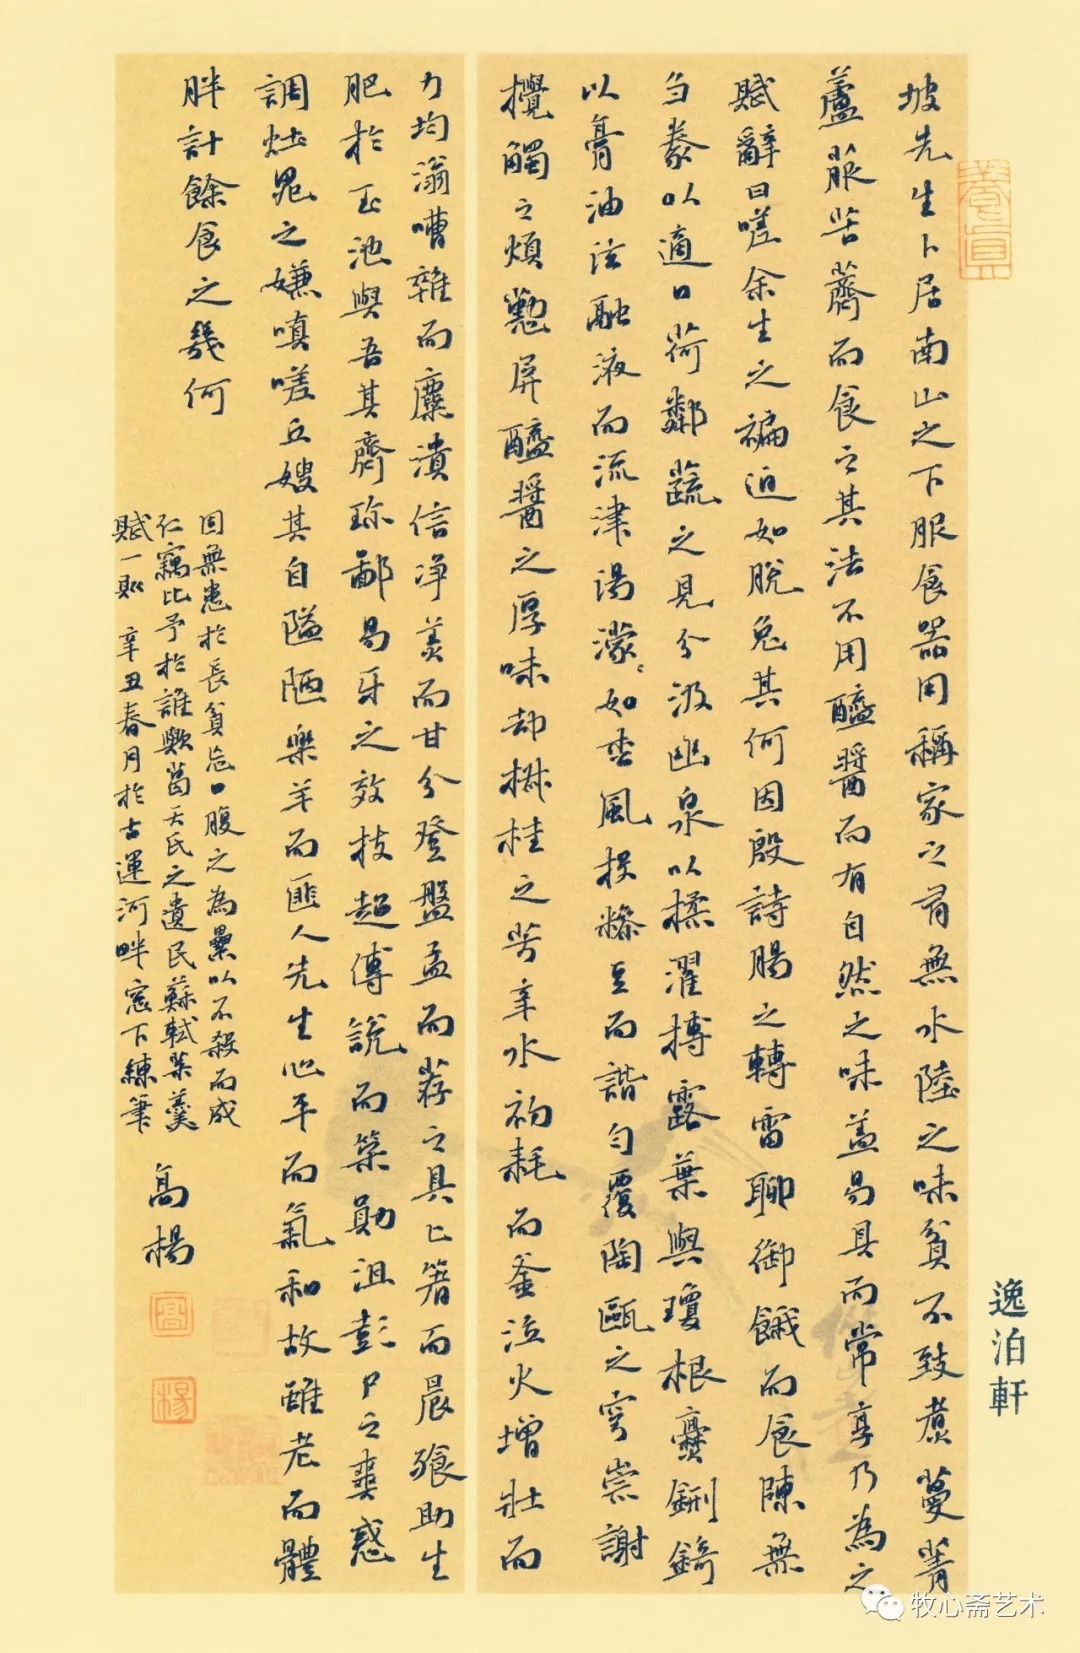 養真
坡先生卜居南山之下服食器用稱家之有無水陸之味貧不致煑蔓菁
蘆菔苦薺而食之其法不用醯醬而有自然之味蓋易具而常享乃為之
賦辭曰嗟余生之褊迫如脫兔其何因殷詩腸之轉雷聊御餓而食陳無
芻豢以適口荷鄰蔬之見分汲幽泉以揉濯摶露葉與瓊根爨鉶錡
以膏油泫融液而流津湯濛〻如枩風投糝豆而諧勻覆陶甌之穹崇謝
攪觸之煩懃屏醯醬之厚味却椒桂之芳辛水初耗而釜泣火增壯而
力均滃嘈雜而麋潰信净羙而甘分登盤盂而荐之具匕箸而晨飱助生
肥於玉池與吾其齊珎鄙易牙之效技超傅說而策勛沮彭尸之爽惑
調灶鬼之嫌嗔嗟丘嫂其自隘陋樂羊而匪人先生心平而氣和故雖老而體
胖計餘食之幾何
固無患於長貧忘口腹之為累以不殺而成
仁竊比予於誰歟葛天氏之遺民蘇軾菜羹
賦一則 辛丑春月於古運河畔窓下練筆
高楊
高
楊
逸泊軒
牧心斋艺术